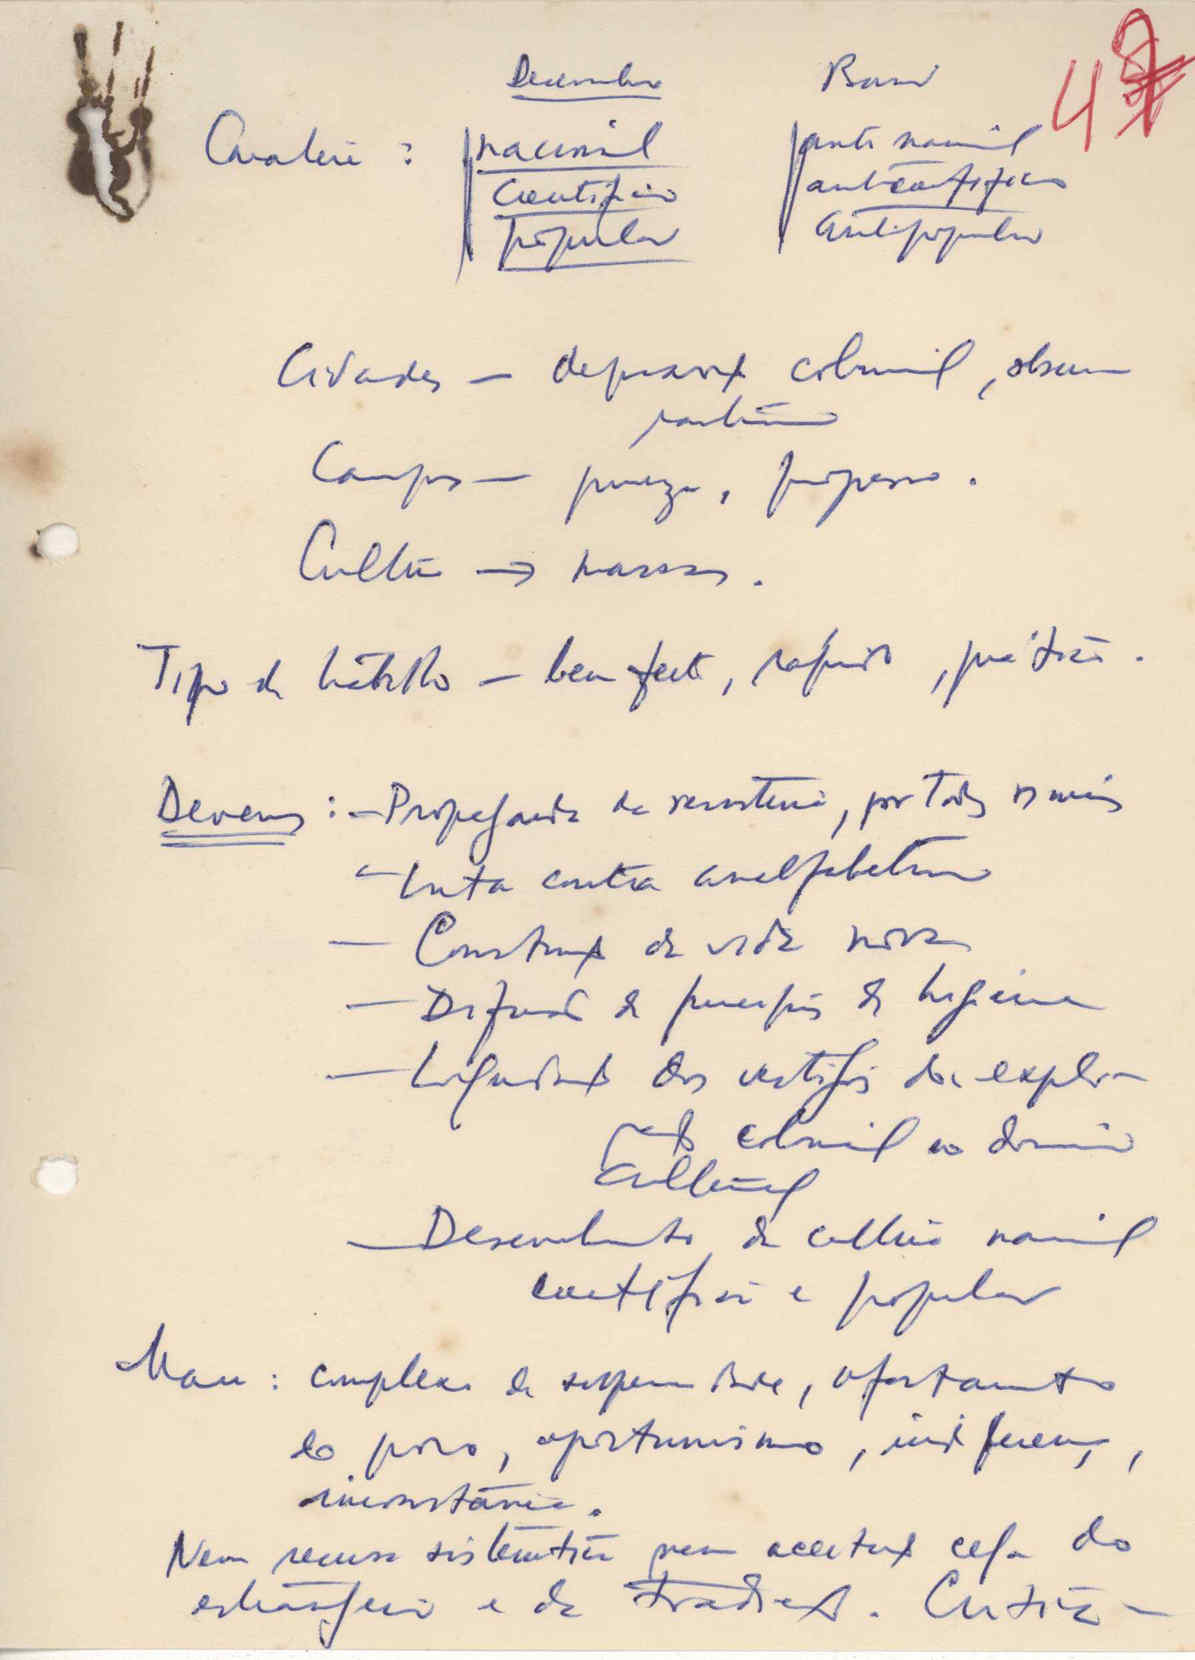 48
Desenvolver Banir
Carácter : nacional anti nacional
científico anticientífico
popular antipopular
Cidades — depravação colonial, obscu
rantismo
Campos — pureza, progresso.
Cultura → massas.
Tipo de trabalho — bem feito, rápido, prática.
Deveres : — Propaganda da resistência, por todos os meios
— luta contra analfabetismo
— Construção da vida nova
— Difusão de princípios de higiene
— Liquidação dos vestígios da explo-
ração colonial no domínio
cultural
— Desenvolvimento da cultura nacional
científica e popular
Mau : complexo de superioridade, afastamento
do povo, oportunismo, indiferença,
inconstância.
Nem recusa sistemática nem aceitação cega do
estrangeiro e da tradição. Crítica —